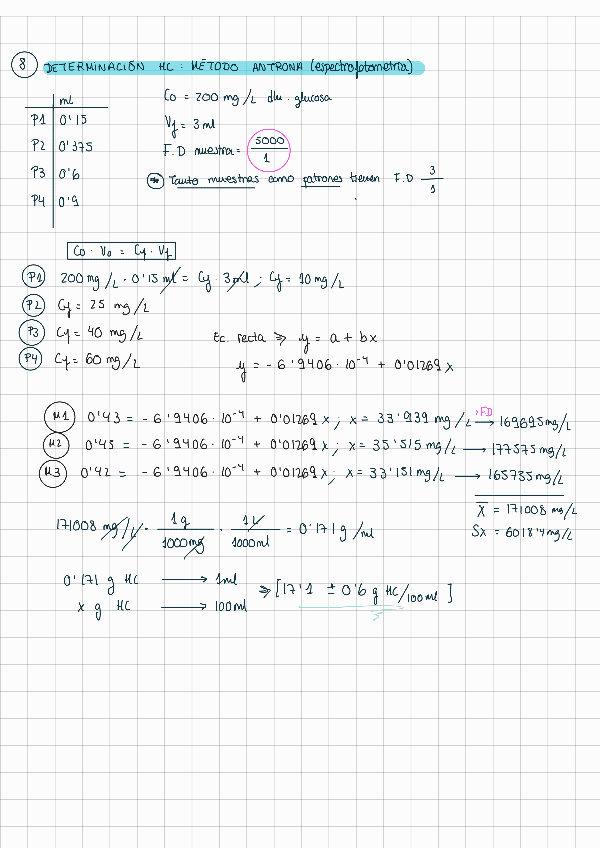 8 DETERMINACIÓN HC: MÉTODO ANTRONA (espectrofotometría)
ml
P1 0'15
P2 0'375
P3 0'6
P4 0'9
C0 = 200 mg/L dlu. glucosa
Vf = 3 ml
F.D muestra = 5000/1
* Tanto muestras como patrones tienen F.D 3/1
C0 · V0 = Cf · Vf
P1 200 mg/L · 0'15 ml = Cf · 3 ml ; Cf = 10 mg/L
P2 Cf = 25 mg/L
P3 Cf = 40 mg/L
P4 Cf = 60 mg/L
Ec. recta ⇒ y = a + bx
y = - 6'9406 · 10⁻⁴ + 0'01269 x
M1 0'43 = - 6'9406 · 10⁻⁴ + 0'01269 x ; x = 33'939 mg/L ·FD → 169695 mg/L
M2 0'45 = - 6'9406 · 10⁻⁴ + 0'01269 x ; x = 35'515 mg/L → 177575 mg/L
M3 0'42 = - 6'9406 · 10⁻⁴ + 0'01269 x ; x = 33'151 mg/L → 165735 mg/L
X̄ = 171008 mg/L
Sx = 6018'4 mg/L
171008 mg/L · 1g/1000mg · 1L/1000ml = 0'171 g/ml
0'171 g HC → 1ml
x g HC → 100ml
⇒ [17'1 ± 0'6 g HC/100ml]